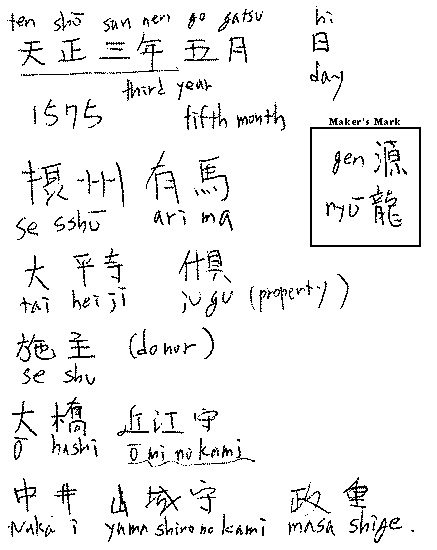 ten shō san nen go gatsu
天正三年五月
third year
1575 fifth month
hi
日
day
Maker's Mark
gen 源
ryū 龍
摂州 有馬
se sshū ari ma
大平寺 什具
tai hei ji jū gu (property)
施主 (donor)
se shu
大橋 近江守
ō hashi ōmi no kami
中井 山城守 政重
Naka i yama shiro no kami masa shige.